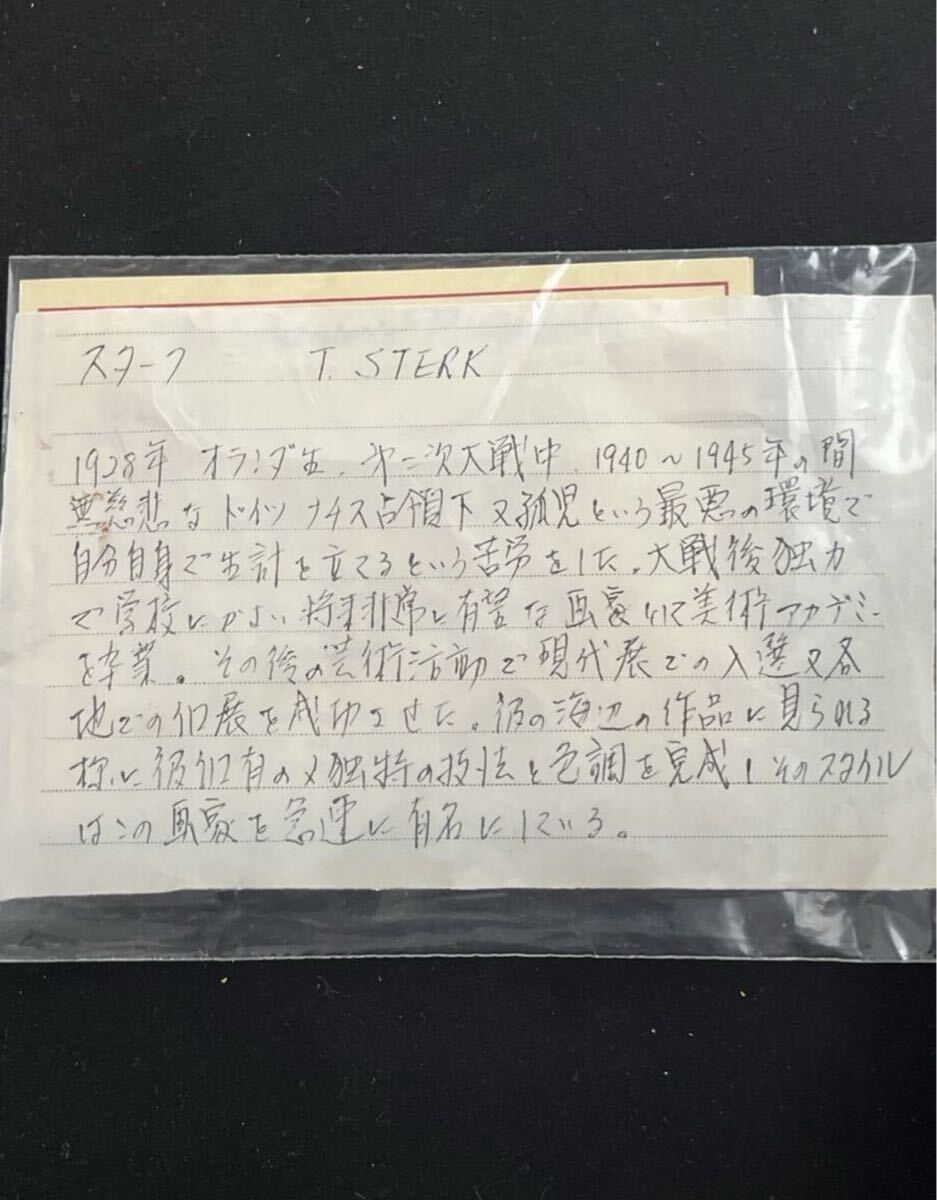 スターク T. STERK
1928年 オランダ生、第二次大戦中、1940～1945年の間
無慈悲なドイツナチス占領下又孤児という最悪の環境で
自分自身で生計を立てるという苦労をした。大戦後独力
で学校にかよい将来非常に有望な画家として美術アカデミー
を卒業。その後の芸術活動で現代展での入選又各
地での個展を成功させた。彼の海辺の作品に見られる
様に彼個有の又独特の技法と色調を完成しそのスタイル
はこの画家を急速に有名にしている。